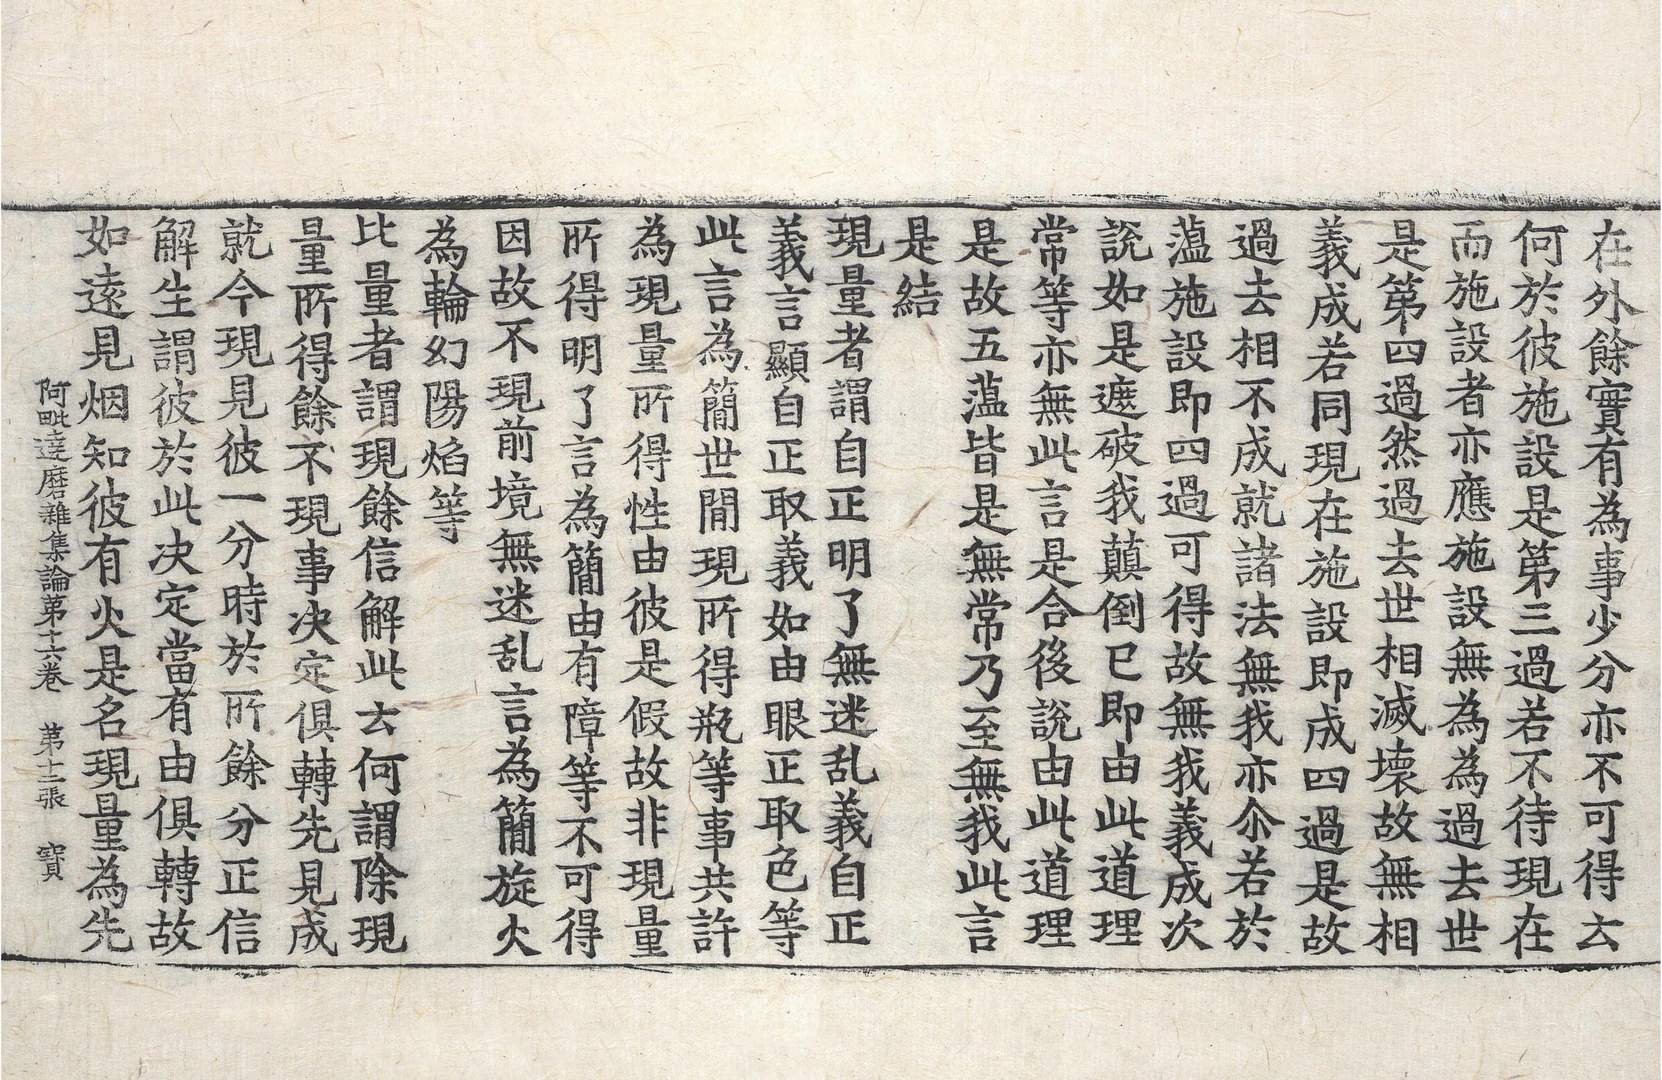 在外餘實有為事少分亦不可得去
何於彼施設是第三過若不待現在
而施設者亦應施設無為為過去世
是第四過然過去世相滅壞故無相
義成若同現在施設即成四過是故
過去相不成就諸法無我亦尒若於
薀施設即四過可得故無我義成次
說如是遮破我顛倒已即由此道理
常等亦無此言是合後說由此道理
是故五薀皆是無常乃至無我此言
是結
現量者謂自正明了無迷乱義自正
義言顯自正取義如由眼正取色等
此言為簡世閒現所得瓶等事共許
為現量所得性由彼是假故非現量
所得明了言為簡由有障等不可得
因故不現前境無迷乱言為簡旋火
為輪幻陽焰等
比量者謂現餘信解此去何謂除現
量所得餘不現事決定俱轉先見成
就今現見彼一分時於所餘分正信
解生謂彼於此決定當有由俱轉故
如遠見烟知彼有火是名現量為先
阿毗達磨雜集論第十六卷　第十二張　寶